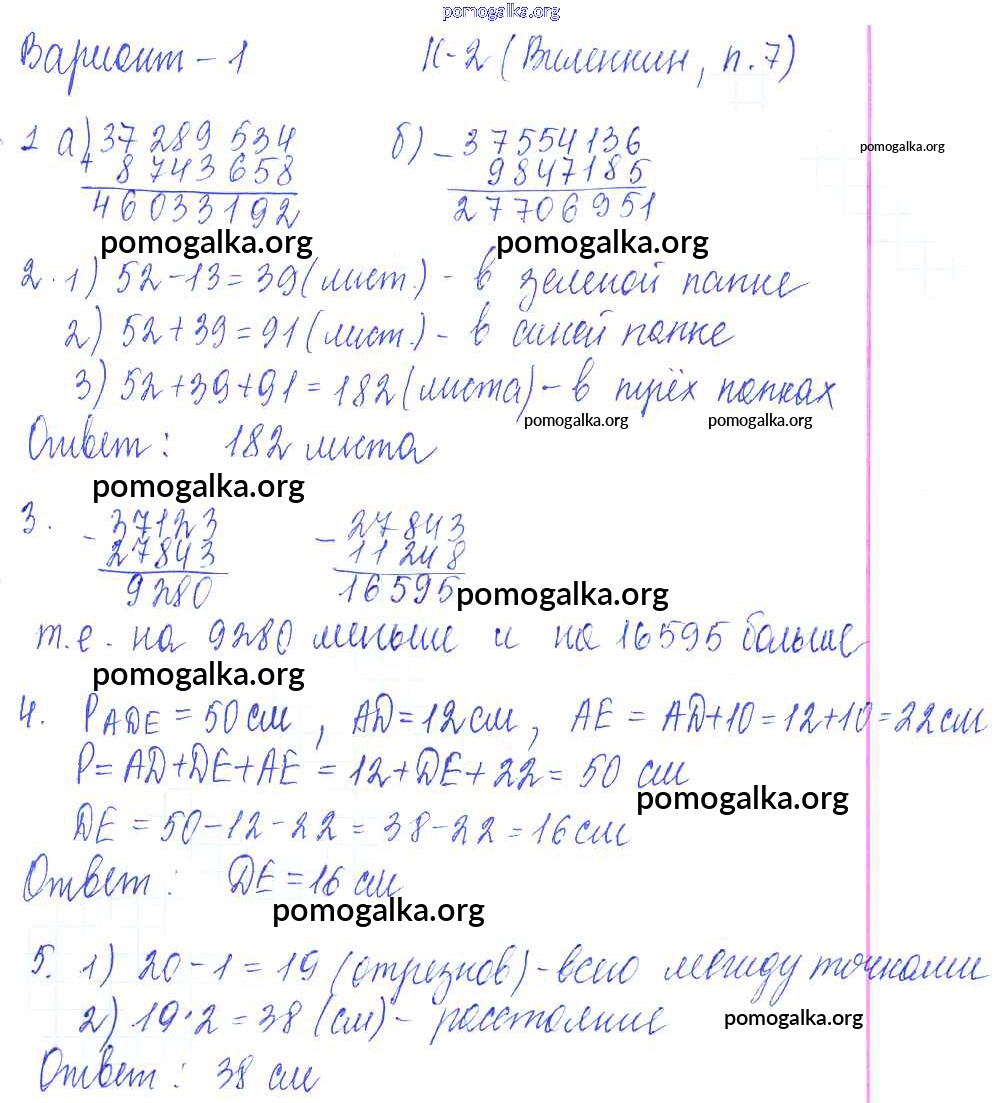 pomogalka.org
Вариант - 1 К-2 (Виленкин, п. 7)
pomogalka.org
1 а) 37 289 534 б) - 37554136
+ 8 743 658 9847185
46033192 27706951
pomogalka.org pomogalka.org
2. 1) 52 - 13 = 39 (лист.) - в зеленой папке
2) 52 + 39 = 91 (лист.) - в синей папке
3) 52 + 39 + 91 = 182 (листа) - в трёх папках
pomogalka.org pomogalka.org
Ответ: 182 листа
pomogalka.org
3. - 37123 - 27843
27843 11248
9280 16595
pomogalka.org
т.е. на 9280 меньше и на 16595 больше
pomogalka.org
4. P ADE = 50 см, AD = 12 см, AE = AD + 10 = 12 + 10 = 22 см
P = AD + DE + AE = 12 + DE + 22 = 50 см
pomogalka.org
DE = 50 - 12 - 22 = 38 - 22 = 16 см
Ответ: DE = 16 см
pomogalka.org
5. 1) 20 - 1 = 19 (отрезков) - всего между точками
2) 19 · 2 = 38 (см) - расстояние
pomogalka.org
Ответ: 38 см